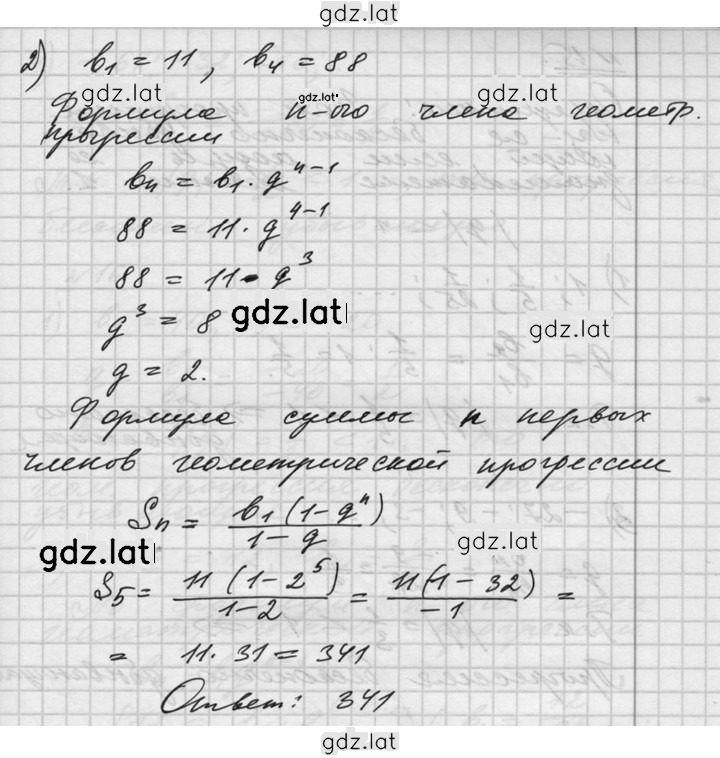 gdz.lat
2) b₁ = 11, b₄ = 88
gdz.lat
gdz.lat
gdz.lat
Формула n-ого члена геометр.
прогрессии
bₙ = b₁ · q^(n-1)
88 = 11 · q^(4-1)
88 = 11 · q³
q³ = 8
gdz.lat
gdz.lat
q = 2.
Формула суммы n первых
членов геометрической прогрессии
Sₙ = b₁(1-qⁿ) / 1-q
gdz.lat
gdz.lat
S₅ = 11(1-2⁵) / 1-2 = 11(1-32) / -1 =
= 11 · 31 = 341
Ответ: 341
gdz.lat